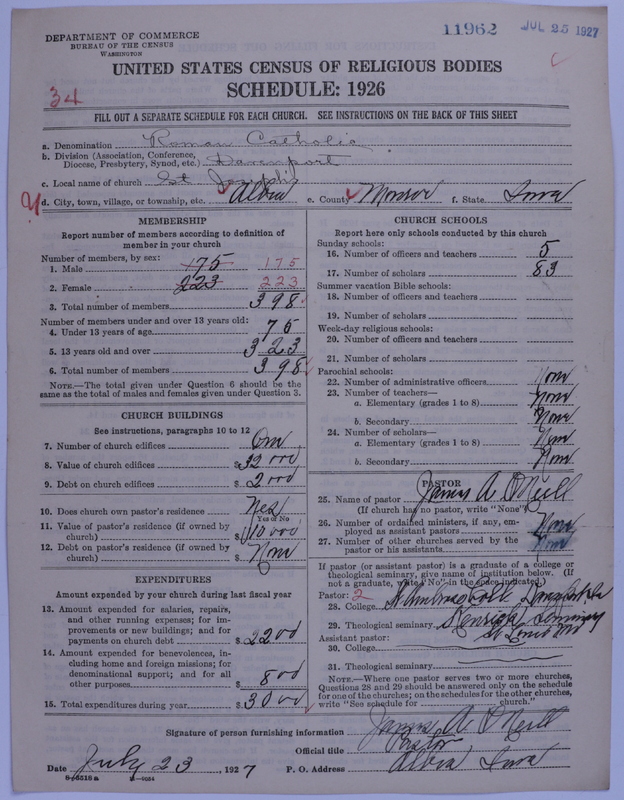 DEPARTMENT OF COMMERCE
BUREAU OF THE CENSUS
WASHINGTON
11962
JUL 25 1927
UNITED STATES CENSUS OF RELIGIOUS BODIES
SCHEDULE: 1926
34
FILL OUT A SEPARATE SCHEDULE FOR EACH CHURCH. SEE INSTRUCTIONS ON THE BACK OF THIS SHEET
a. Denomination Roman Catholic
b. Division (Association, Conference,
Diocese, Presbytery, Synod, etc.) Davenport
c. Local name of church St Joseph's
d. City, town, village, or township, etc. Albia e. County Monroe f. State Iowa
MEMBERSHIP
Report number of members according to definition of
member in your church
Number of members, by sex:
1. Male 175 175
2. Female 223 223
3. Total number of members 398
Number of members under and over 13 years old:
4. Under 13 years of age 75
5. 13 years old and over 323
6. Total number of members 398
NOTE.—The total given under Question 6 should be the
same as the total of males and females given under Question 3.
CHURCH BUILDINGS
See instructions, paragraphs 10 to 12
7. Number of church edifices One
8. Value of church edifices $32000
9. Debt on church edifices $2000
10. Does church own pastor's residence Yes
Yes or No
11. Value of pastor's residence (if owned by
church) $10000
12. Debt on pastor's residence (if owned by
church) $None
EXPENDITURES
Amount expended by your church during last fiscal year
13. Amount expended for salaries, repairs,
and other running expenses; for im-
provements or new buildings; and for
payments on church debt $2200
14. Amount expended for benevolences, in-
cluding home and foreign missions; for
denominational support; and for all
other purposes $800
15. Total expenditures during year $3000
CHURCH SCHOOLS
Report here only schools conducted by this church
Sunday schools:
16. Number of officers and teachers 5
17. Number of scholars 83
Summer vacation Bible schools:
18. Number of officers and teachers
19. Number of scholars
Week-day religious schools:
20. Number of officers and teachers
21. Number of scholars
Parochial schools:
22. Number of administrative officers None
23. Number of teachers—
a. Elementary (grades 1 to 8) None
b. Secondary None
24. Number of scholars—
a. Elementary (grades 1 to 8) None
b. Secondary None
PASTOR
25. Name of pastor James A O'Neill
(If church has no pastor, write "None")
26. Number of ordained ministers, if any, em-
ployed as assistant pastors None
27. Number of other churches served by the
pastor or his assistants None
If pastor (or assistant pastor) is a graduate of a college or
theological seminary, give name of institution below. (If
not a graduate, write "No" in the space indicated.)
Pastor: 2
28. College St Ambrose Davenport Ia
29. Theological seminary Kenrick Seminary
St Louis Mo
Assistant pastor:
30. College
31. Theological seminary
NOTE.—Where one pastor serves two or more churches,
Questions 28 and 29 should be answered only on the schedule
for one of the churches; on the schedules for the other churches,
write "See schedule for church."
Signature of person furnishing information James A O'Neill
Official title Pastor
Date July 23, 1927 P. O. Address Albia Iowa